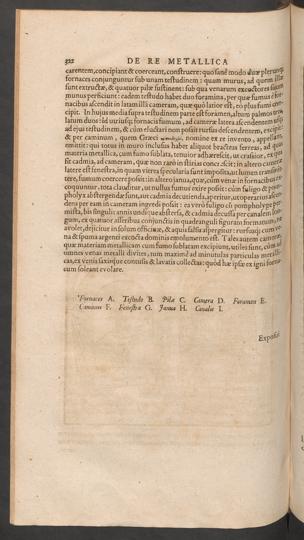 322 DE RE METALLICA
carentem, concipiant & coerceant, construere: quo sanè modo duæ plerunque
fornaces conjunguntur sub unam testudinem: quam murus, ad quem illæ
sunt extructæ, & quatuor pilæ sustinent: sub qua venarum excoctores suum
munus perficiunt: eadem testudo habet duo foramina, per quæ fumus è for-
nacibus ascendit in latam illã cameram, quæ quò latior est, eò plus fumi con-
cipit. In hujus media supra testudinem parte est foramen, altum palmos tres,
latum duos: id utriusq; fornacis fumum, ad cameræ latera ascendentem usq;
ad ejus testudinem, & cùm eluctari non possit rursus descendentem, excipit:
& per caminum, quem Græci nomine ex re invento, appellant,
emittit: qui totus in muro inclusus habet aliquot bracteas ferreas, ad quas
materia metallica, cum fumo sublata, tenuior adhærescit, ut crassior, ex qua
fit cadmia, ad cameram, quæ non rarò in stirias concrescit: in altero cameræ
latere est fenestra, in quam vitrea specularia sunt imposita, ut lumen transmit-
tere, fumum coercere possit: in altero janua, quæ, cùm venæ in fornacibus ex-
coquuntur, tota clauditur, ut nullus fumus exire possit: cùm fuligo & pom-
pholyx abstergendæ sunt, aut cadmia decutienda, aperitur, ut operarii ascen-
dens per eam in cameram ingredi possit: ea verò fuligo cũ pompholyge per-
mista, bis singulis annis undiq; abstersa, & cadmia decussa per canalem lon-
gum, ex quatuor asseribus conjunctis in quadranguli figuram formatum, ne
avolet, dejicitur in solum officinæ, & aqua salsa aspergitur: rursusq; cum ve-
na & spuma argenti excocta dominis emolumento est. Tales autem cameræ,
quæ materiam metallicam cum fumo sublatam excipiunt, utiles sunt, cùm ad
omnes venas metalli divites, tum maximè ad minutulas particulas metalli-
cas, ex venis saxisque contusis & lavatis collectas: quòd hæ ipsæ ex igni forna-
cum soleant evolare.
Fornaces A. Testudo B. Pilæ C. Camera D. Foramen E.
Caminus F. Fenestra G. Janua H. Canalis I.
Exposui